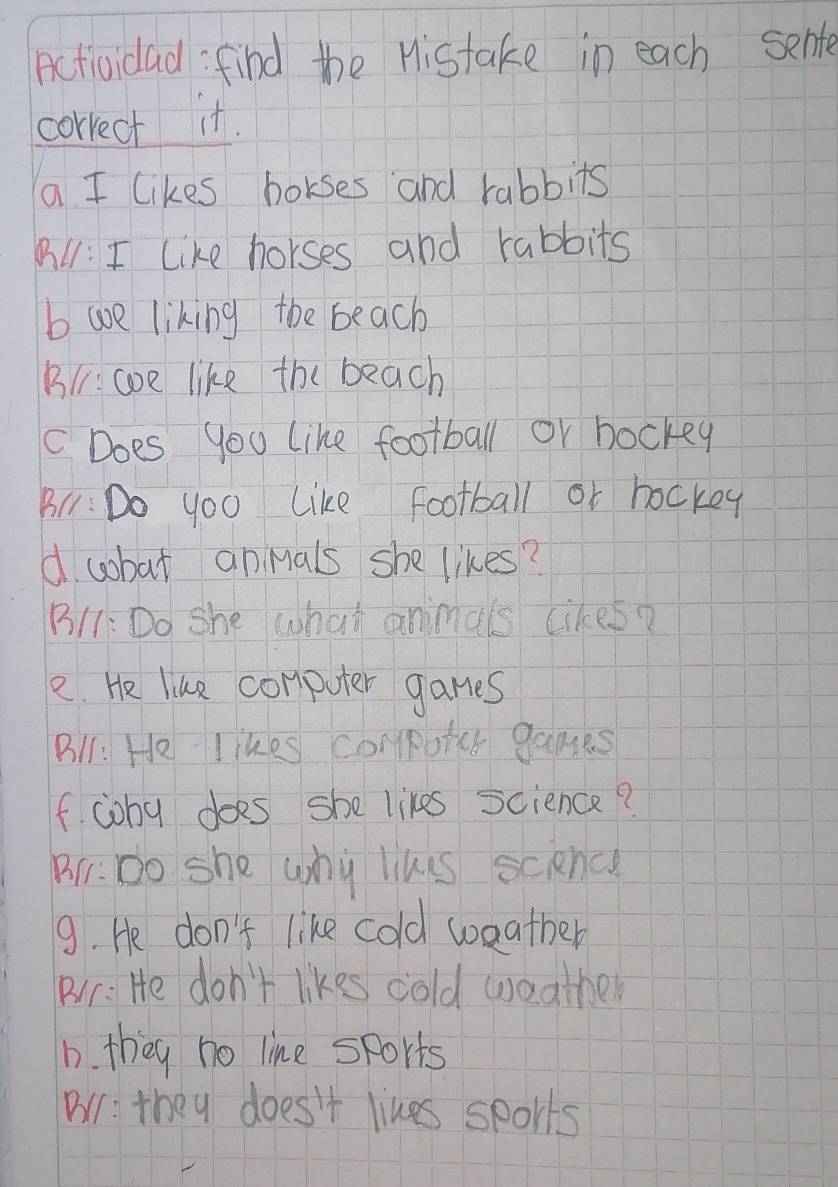 Actividad: find the Mistake in each sente
correct it.
a I likes horses and rabbits
R//: I like horses and rabbits
b we liking the beach
R//: we like the beach
c Does you like football or hockey
R//: Do you like football or hockey
d. what animals she likes?
R//: Do she what animals likes?
e. He like computer games
R//: He likes computer games
f. why does she likes science?
R//: Do she why likes science
g. He don't like cold weather
R//: He don't likes cold weather
h. they no like sports
R//: they does't likes sports